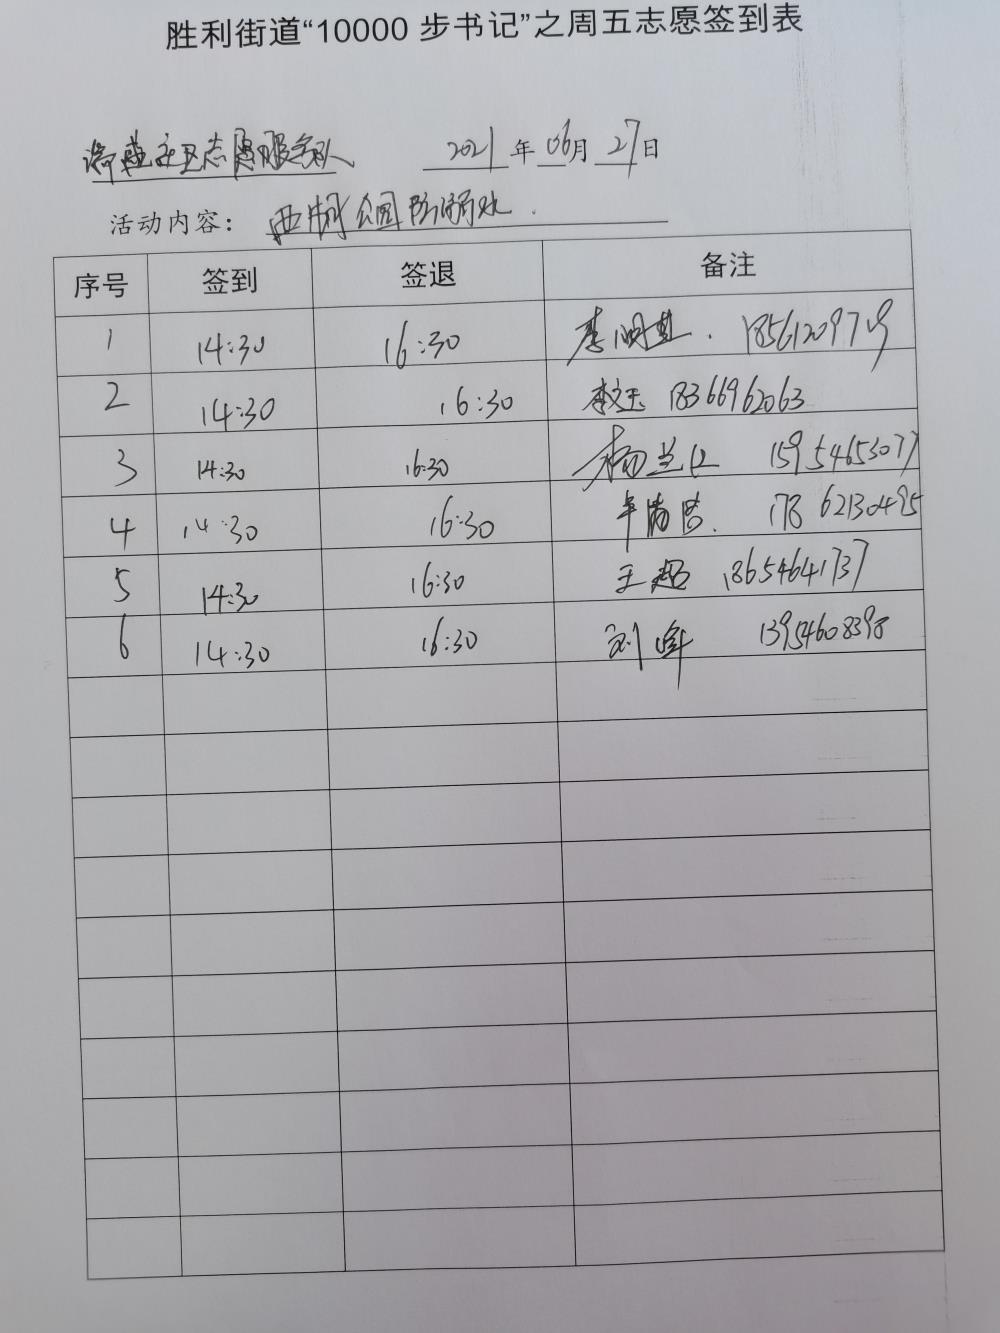 胜利街道“10000 步书记”之周五志愿签到表
社区志愿服务队 2021 年 06月 27日
活动内容： 西湖公园防溺水.
序号 签到 签退 备注
1 14:30 16:30 李明 185612097
2 14:30 16:30 李文玉 18366962063
3 14:30 16:30 杨兰 15954653077
4 14:30 16:30 17862130495
5 14:30 16:30 王超 18654641737
6 14:30 16:30 刘峰 13954608398